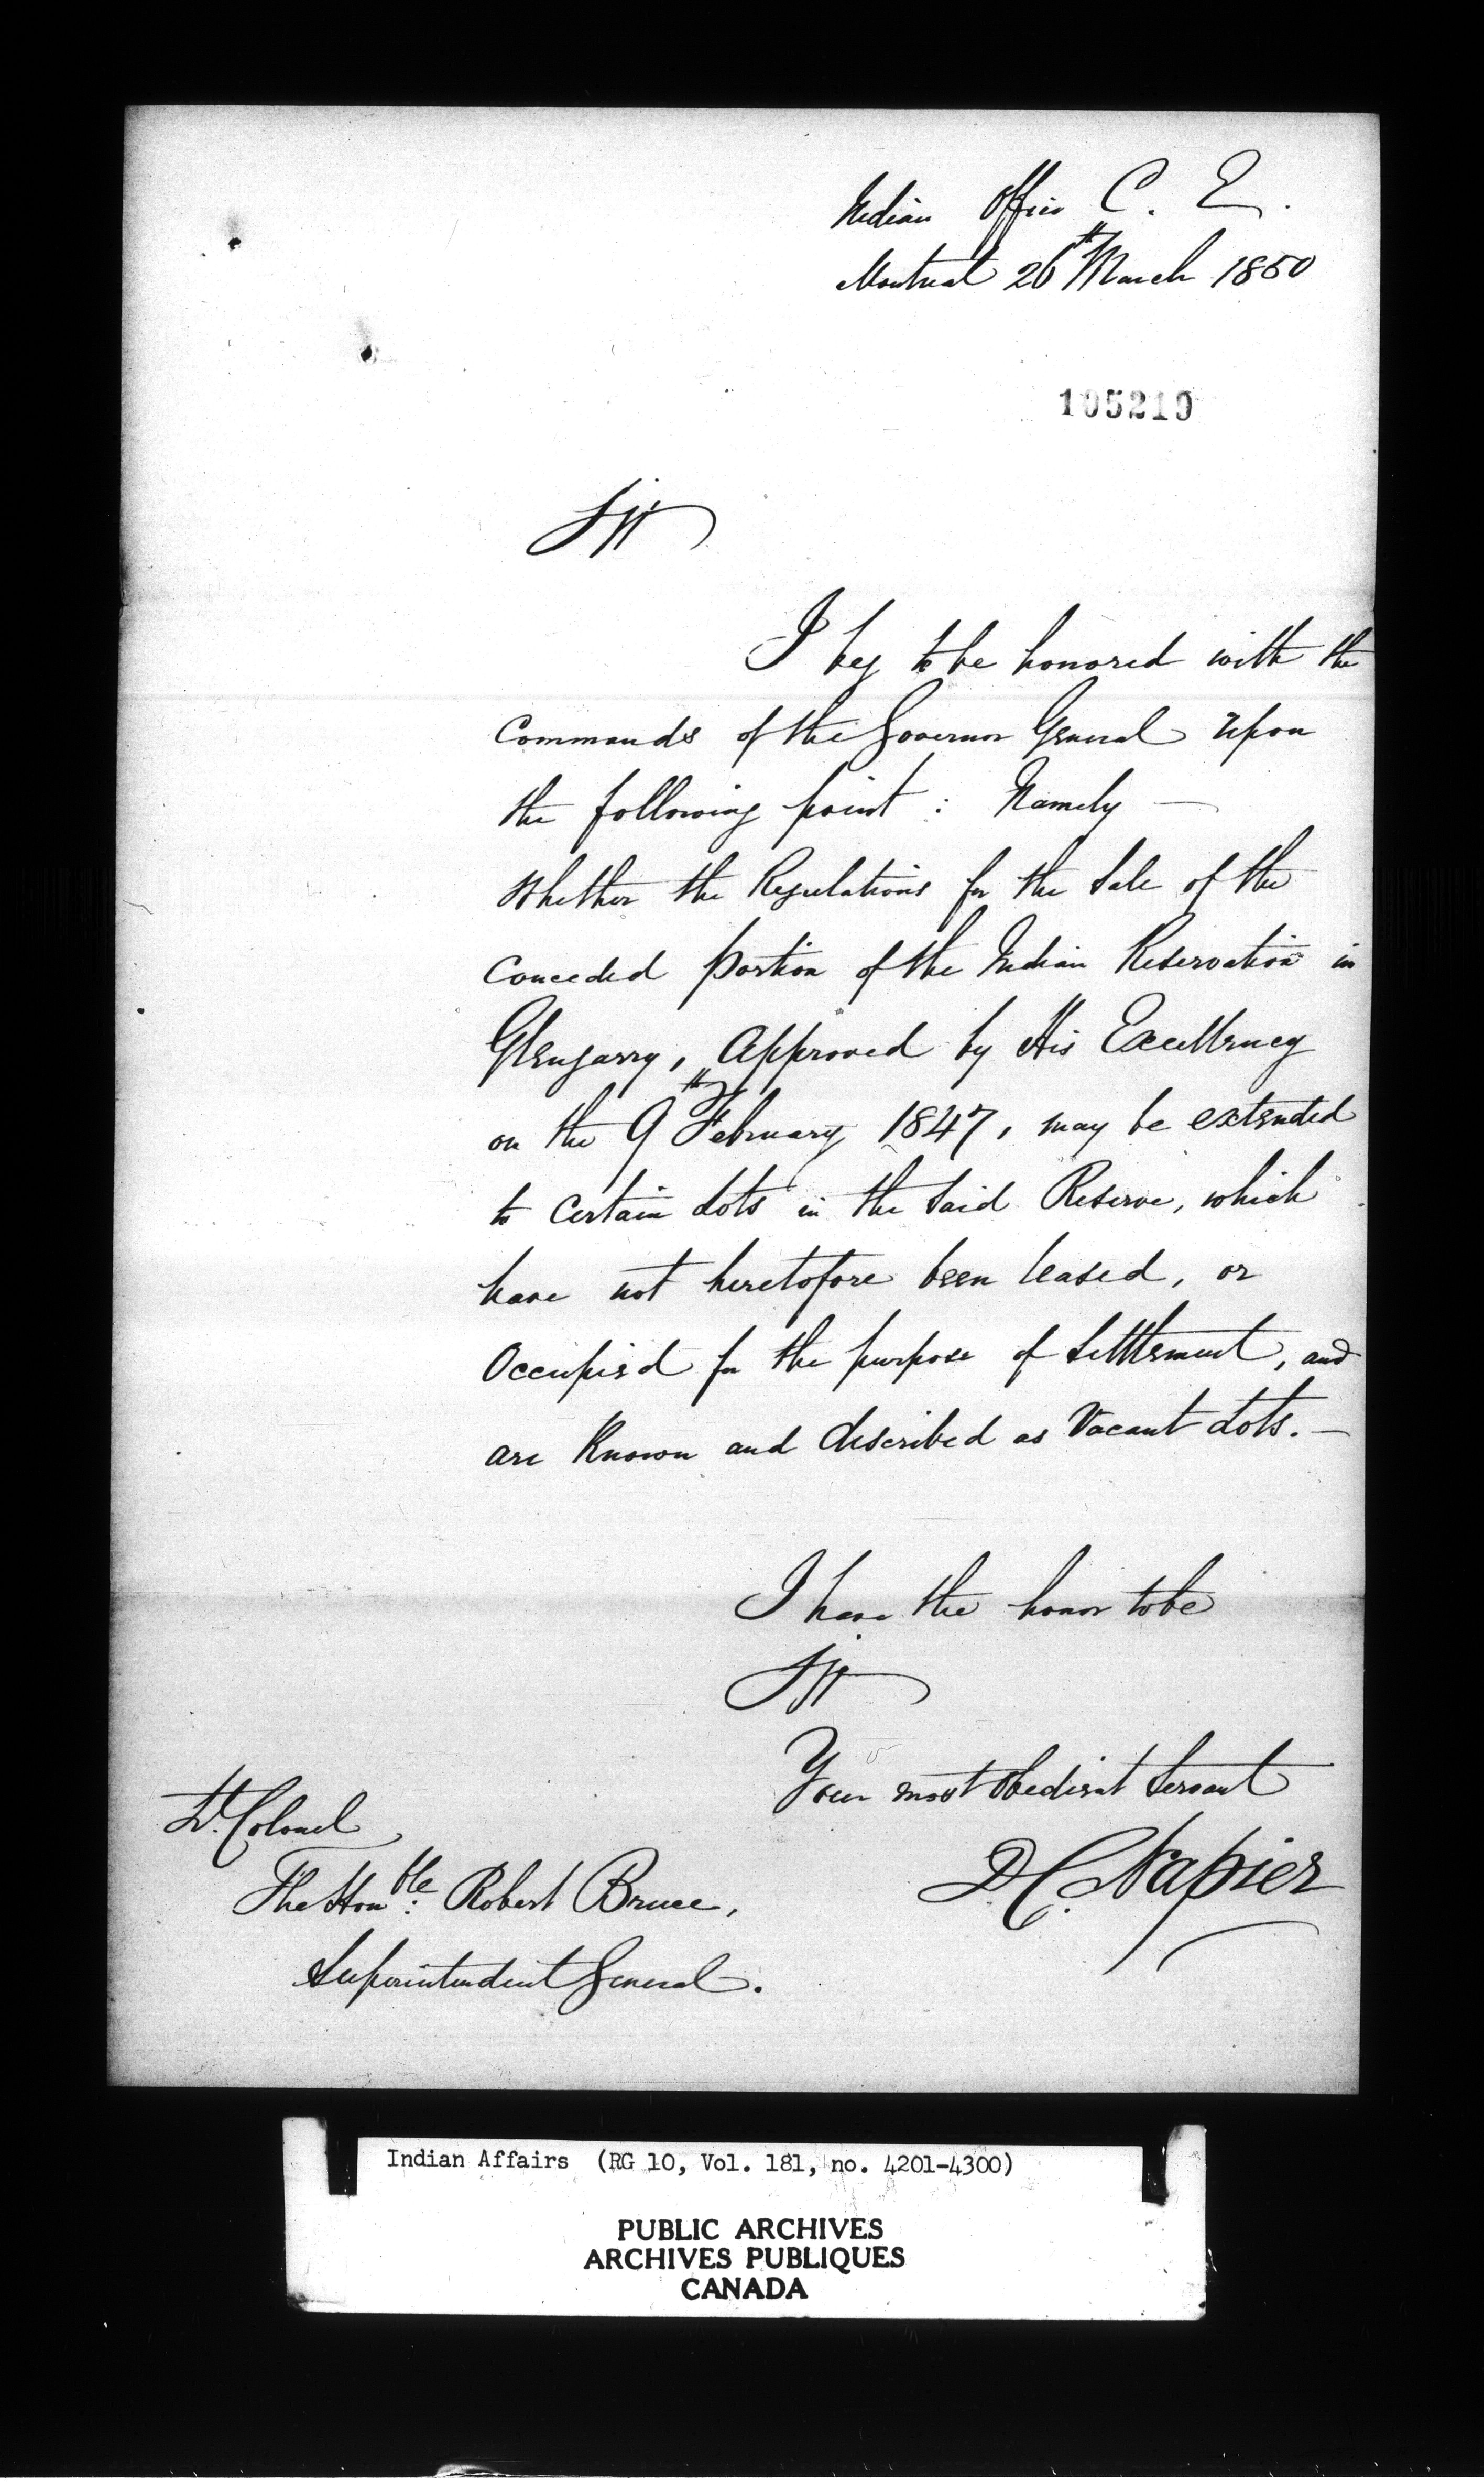 Indian Office C. E.
Montreal 26th March 1850
105219
Sir
I beg to be honored with the
Commands of the Governor General upon
the following point : Namely —
Whether the Regulations for the Sale of the
Conceded portion of the Indian Reservation in
Glengarry, Approved by His Excellency
on the 9th February 1847, may be extended
to Certain Lots in the Said Reserve, which
have not heretofore been leased, or
Occupied for the purpose of Settlement, and
are Known and described as Vacant Lots. —
I have the honor to be
Sir
Your most obedient Servant
D C. Napier
Lt. Colonel
The Honble: Robert Bruce,
Superintendent General.
Indian Affairs (RG 10, Vol. 181, no. 4201-4300)
PUBLIC ARCHIVES
ARCHIVES PUBLIQUES
CANADA